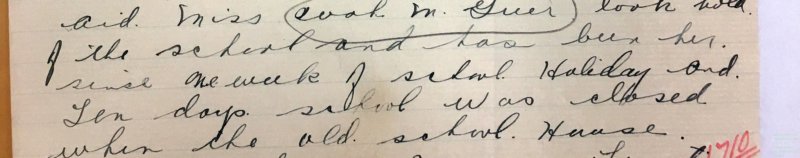 aid. Miss M. Greer took hold.
of the school and has been her.
since one week of school. Holiday and.
Ten days. school was closed
when the old. school. House.
1710